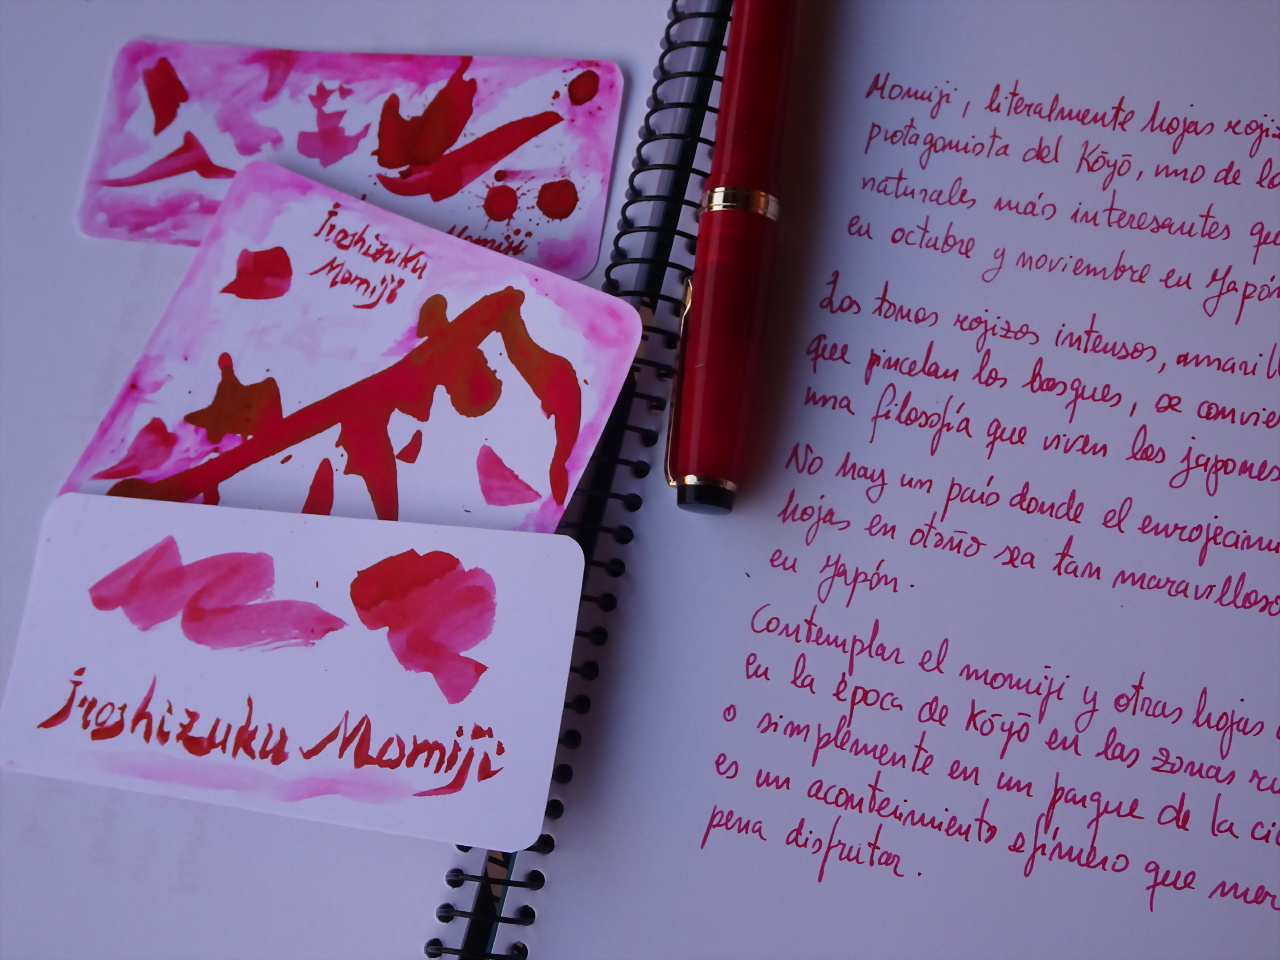 Momiji
Iroshizuku
Momiji
Iroshizuku Momiji
Momiji, literalmente hojas rojiz
protagonista del Kōyō, uno de la
naturales más interesantes que
en octubre y noviembre en Japón
Los tonos rojizos intensos, amarill
que pincelan los bosques, se convie
una filosofía que viven los japones
No hay un país donde el enrojecimi
hojas en otoño sea tan maravilloso
en Japón.
Contemplar el momiji y otras hojas
en la época de Kōyō en las zonas ru
o simplemente en un parque de la ciu
es un acontecimiento efímero que mer
pena disfrutar.